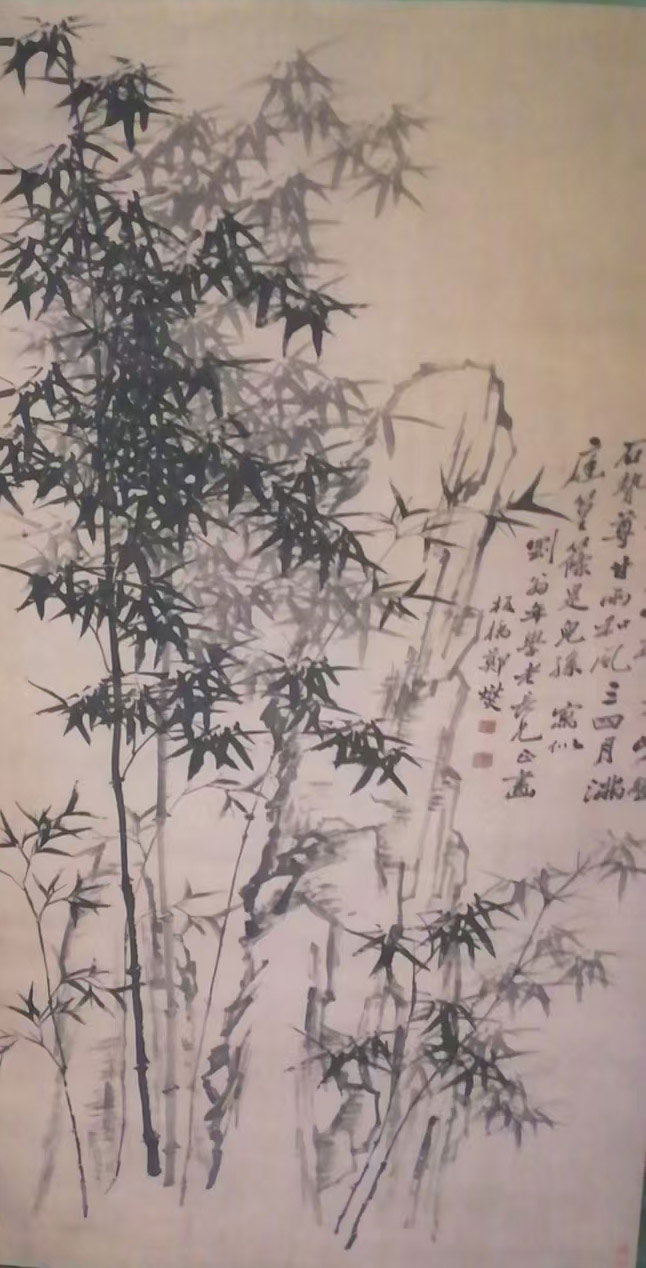 石勢尊甘雨和風三四月滿
庭篁篠是兒孫 寫似
劉翁年學老長兄正畫
板橋鄭燮